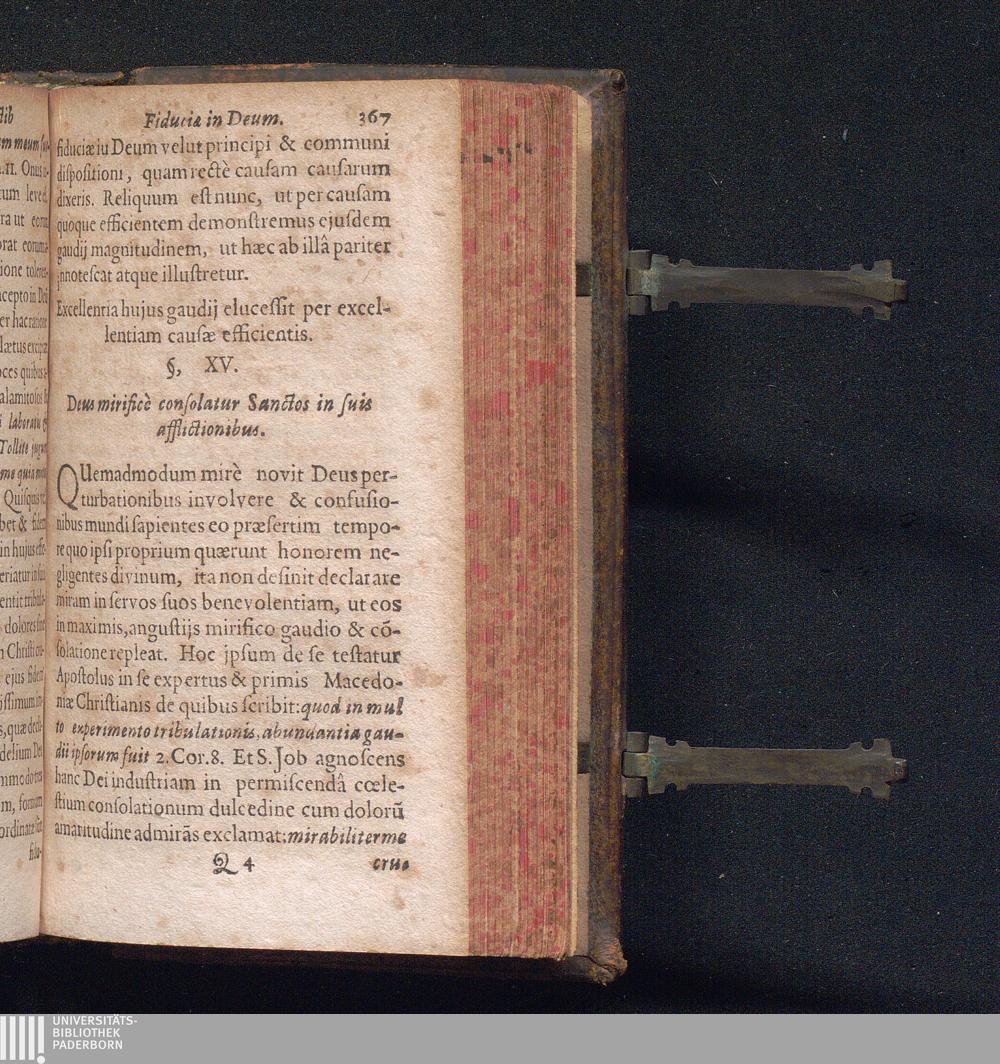 Fiduciæ in Deum. 367
fiduciæ iu Deum velut principi & communi
dispositioni, quam rectè causam causarum
dixeris. Reliquum est nunc, ut per causam
quoque efficientem demonstremus ejusdem
gaudij magnitudinem, ut hæc ab illâ pariter
innotescat atque illustretur.
Excellenria hujus gaudij elucessit per excel-
lentiam causæ efficientis.
§, XV.
Deus mirificè consolatur Sanctos in suis
afflictionibus.
QUemadmodum mirè novit Deus per-
turbationibus involvere & confusio-
nibus mundi sapientes eo præsertim tempo-
re quo ipsi proprium quærunt honorem ne-
gligentes divinum, ita non desinit declarare
miram in servos suos benevolentiam, ut eos
in maximis, angustijs mirifico gaudio & cõ-
solatione repleat. Hoc jpsum de se testatur
Apostolus in se expertus & primis Macedo-
niæ Christianis de quibus scribit: quod in mul
to experimento tribulationis, abundantia gau-
dii ipsorum fuit 2. Cor. 8. Et S. Job agnoscens
hanc Dei industriam in permiscendâ cœle-
stium consolationum dulcedine cum dolorũ
amaritudine admirãs exclamat: mirabiliter me
Q 4 cru-
UNIVERSITÄTS-
BIBLIOTHEK
PADERBORN